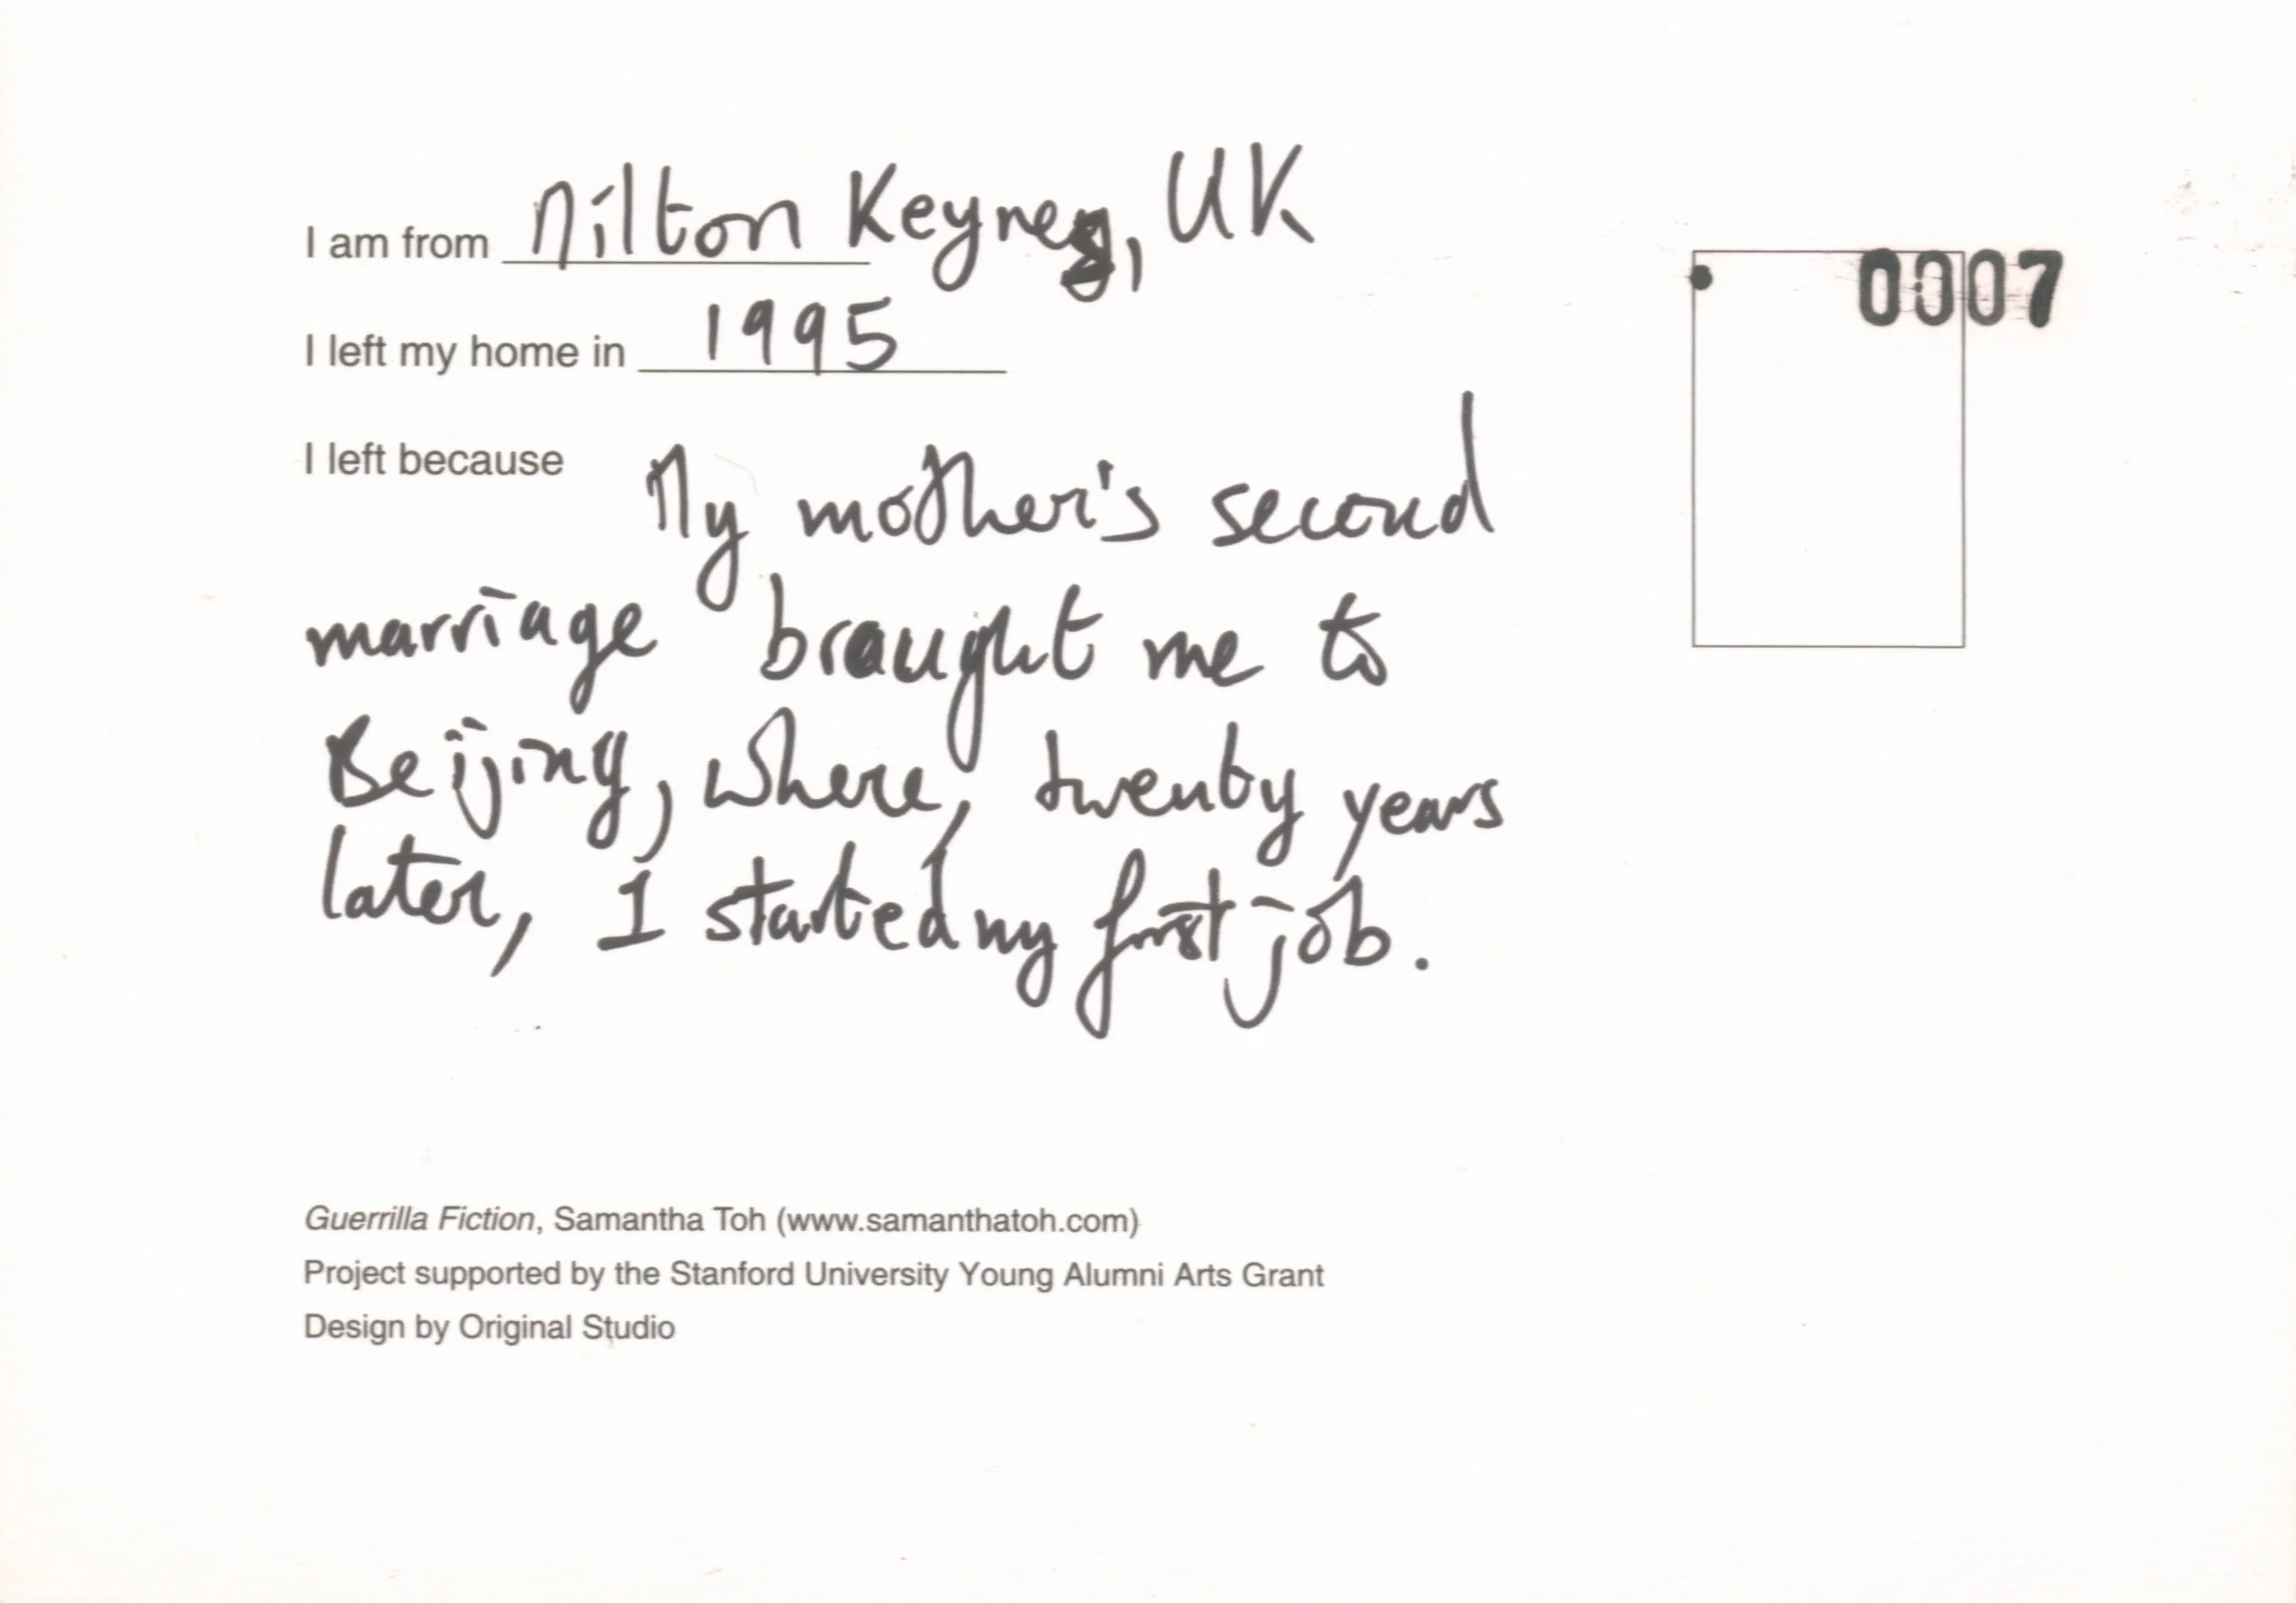 I am from Milton Keynes, UK
0007
I left my home in 1995
I left because My mother's second
marriage brought me to
Beijing, where, twenty years
later, I started my first job.
Guerrilla Fiction, Samantha Toh (www.samanthatoh.com)
Project supported by the Stanford University Young Alumni Arts Grant
Design by Original Studio